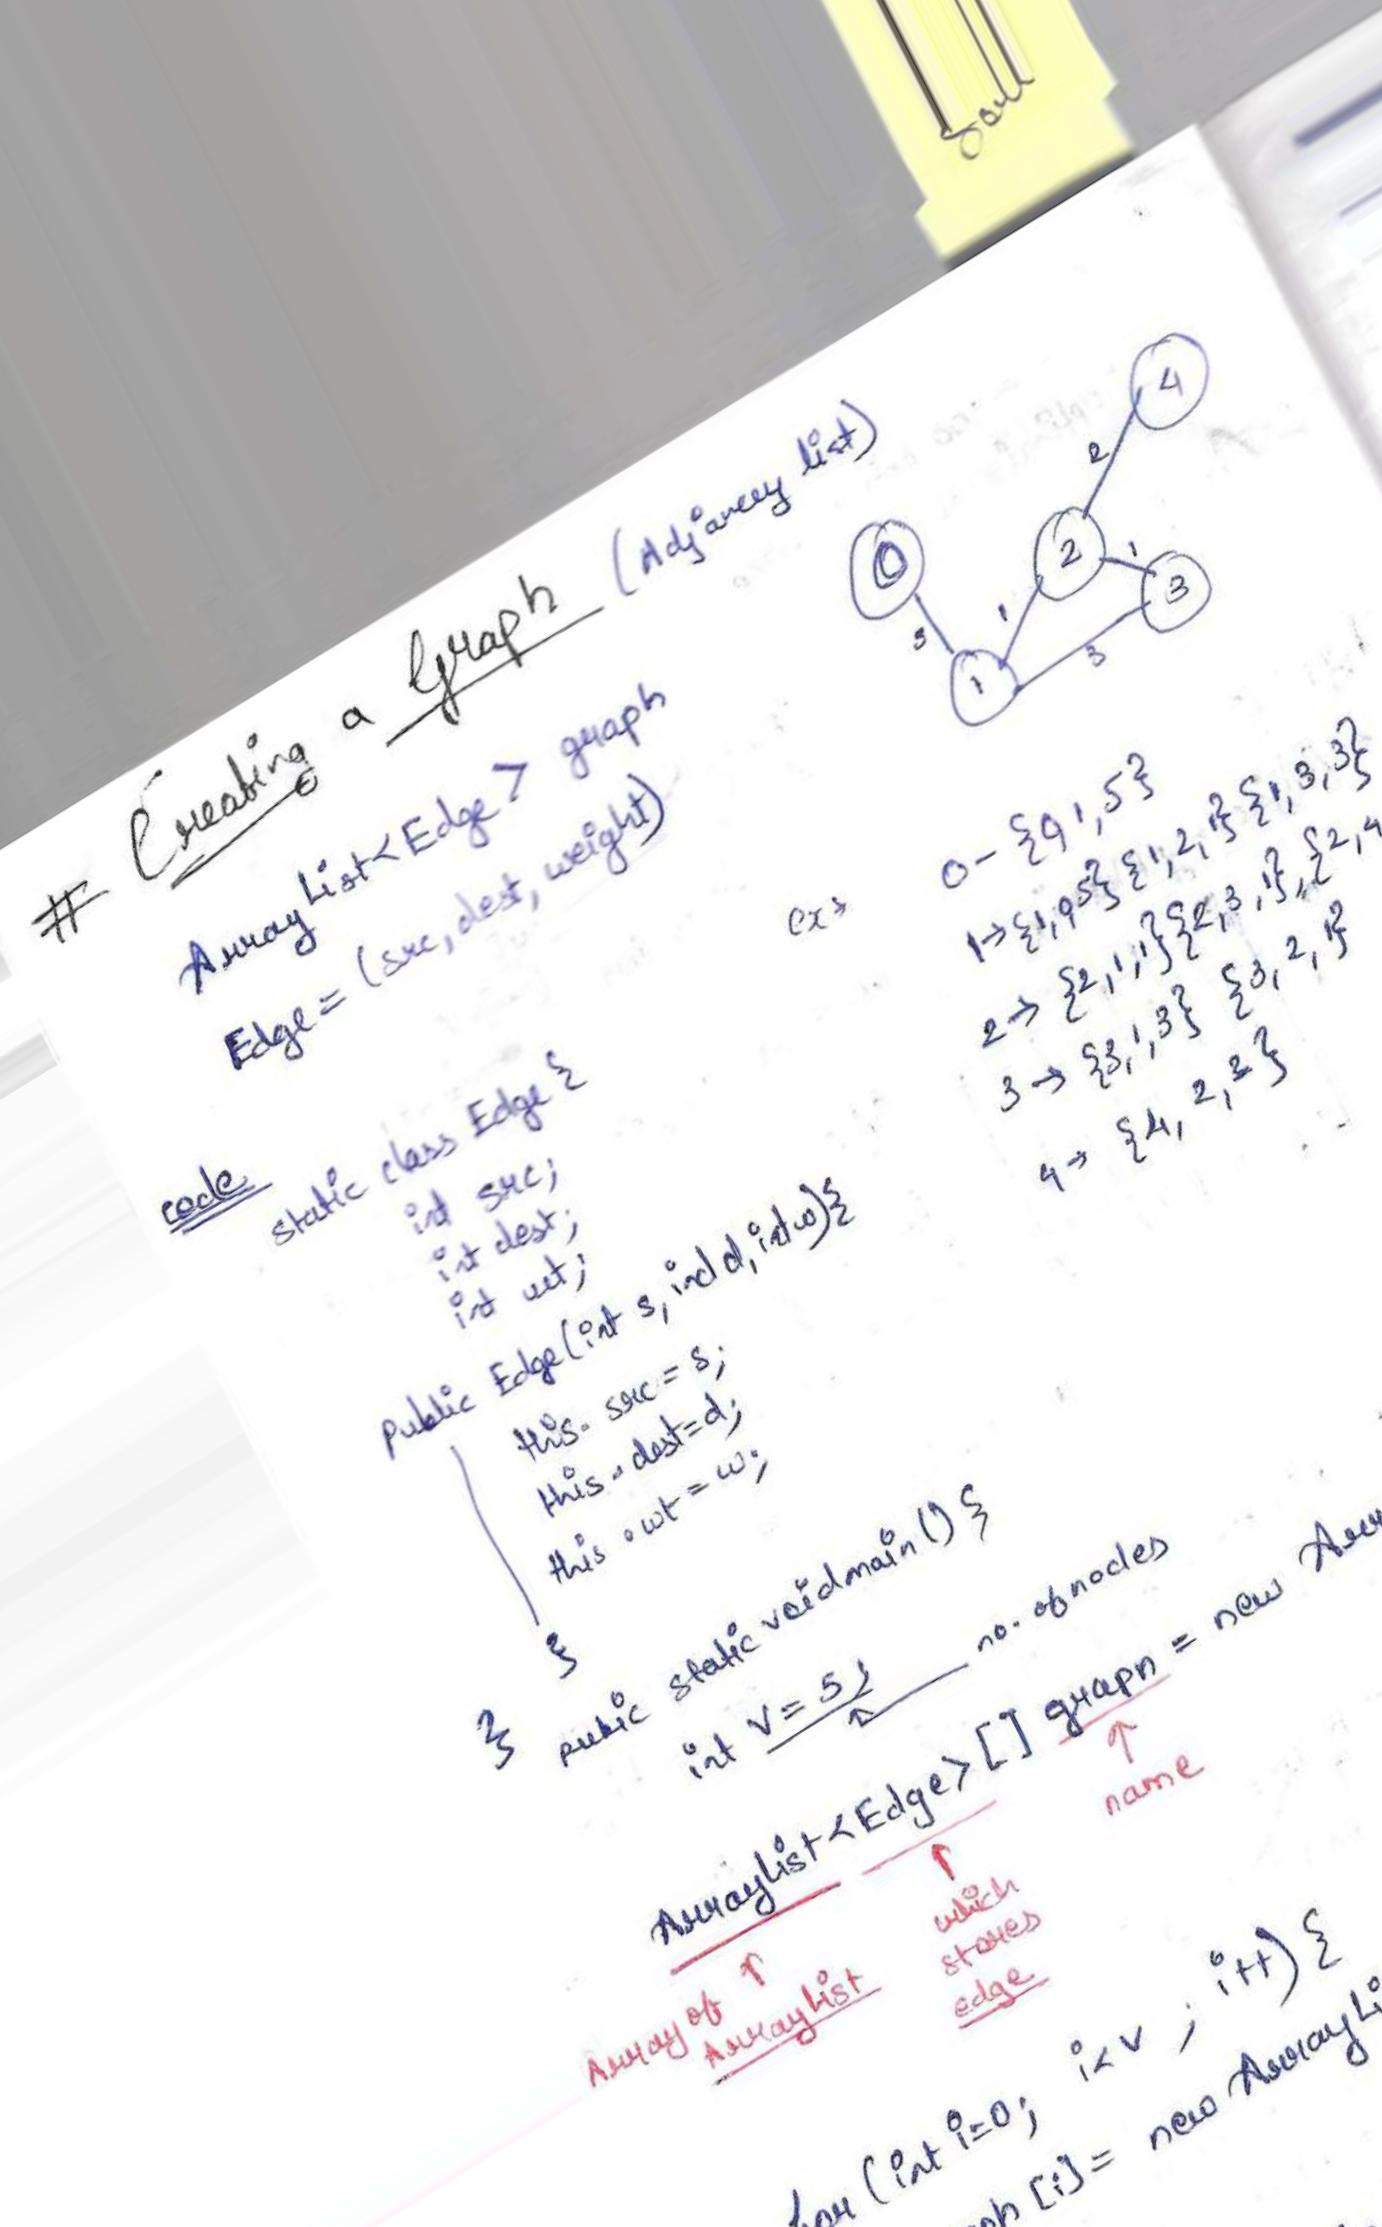 # Creating a Graph (Adjancey list)
ArrayList<Edge> graph
Edge = (src, dest, weight)
4
2
0
2
1
3
5
1
1
3
ex→
0 - {0 1, 5}
1→ {1, 0 5} {1, 2, 1} {1, 3, 3}
2 → {2, 1, 1} {2, 3, 1}, {2, 4
3 → {3, 1, 3} {3, 2, 1}
4 → {4, 2, 2}
code
static class Edge {
int src;
int dest;
int wt;
public Edge (int s, int d, int w) {
this. src = s;
this. dest = d;
this. wt = w;
}
}
public static void main () {
int V = 5; no. of nodes
ArrayList<Edge> [] graph = new Arr
Array of ArrayList
which stores edge
name
for (int i=0; i<V ; i++) {
[i] = new ArrayLi